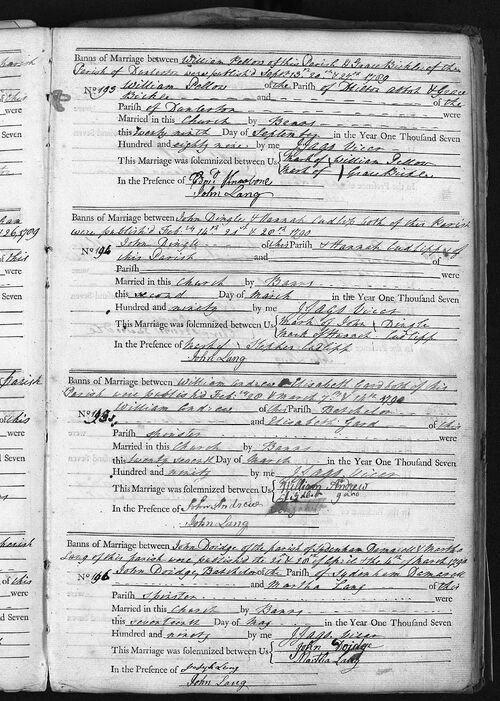 Banns of Marriage between William Pellow of this Parish & Grace Bickle of the
Parish of Dunterton were publish'd Sept. 13th 20th & 27th 1789
No 193 William Pellow of the Parish of Milton abbot & Grace
Bickle and of the
Parish of Dunterton were
Married in this Church by Banns
this twenty ninth Day of September in the Year One Thousand Seven
Hundred and eighty nine by me J Jago Vicar
This Marriage was solemnized between Us mark of William Pellow
mark of Grace Bickle
In the Presence of
John Lang
Banns of Marriage between John Dingle & Hannah Cudlipp both of this Parish
were publish'd Feb. 14th 21st & 1790
No John Dingle of this Parish & Hannah Cudlipp of
this Parish and of
Parish were
Married in this Church by Banns
this second Day of March in the Year One Thousand Seven
Hundred and ninety by me J Jago Vicar
This Marriage was solemnized between Us mark of John Dingle
mark of Hannah Cudlipp
In the Presence of mark of Stephen Cudlipp
John Lang
Banns of Marriage between William Andrew & Elizabeth Gard both of this
Parish were publish'd Feb. & March 7th & 14th 1790
No William Andrew of this Parish Batchelor
and Elizabeth Gard of this
Parish Spinster were
Married in this Church by Banns
this twenty second Day of March in the Year One Thousand Seven
Hundred and ninety by me J Jago Vicar
This Marriage was solemnized between Us William Andrew
In the Presence of John Andrew
John Lang
Banns of Marriage between John Doidge of the parish of Sydenham Damarell & Martha
Lang of this parish were publish'd the of April & the of 1790
No 196 John Doidge, Batchelor of the Parish of Sydenham Damarell
and Martha Lang of this
Parish Spinster were
Married in this Church by Banns
this seventeenth Day of May in the Year One Thousand Seven
Hundred and ninety by me J Jago Vicar
This Marriage was solemnized between Us John Doidge
Martha Lang
In the Presence of Joseph Lang
John Lang